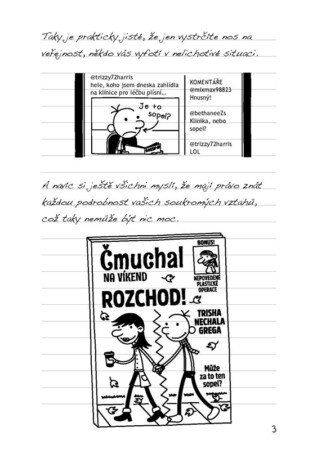 Taky je prakticky jisté, že jen vystrčíte nos na
veřejnost, někdo vás vyfotí v nelichotivé situaci.
@trizzy72harris
hele, koho jsem dneska zahlídla
na klinice pro léčbu plísní...
Je to
sopel?
KOMENTÁŘE
@mienax98823
Hrusný!
@bethaneeZ1
Klinika, nebo
sopel?
@trizzy72harris
LOL
A navíc si ještě všichni myslí, že mají právo znát
každou podrobnost vašich soukromých vztahů,
což taky nemůže být nic moc.
BONUS!
Čmuchal
NA VÍKEND
NEPOVEDENÉ
PLASTICKÉ
OPERACE
ROZCHOD!
TRISHA
NECHALA
GREGA
Může
za to ten
sopel?
3